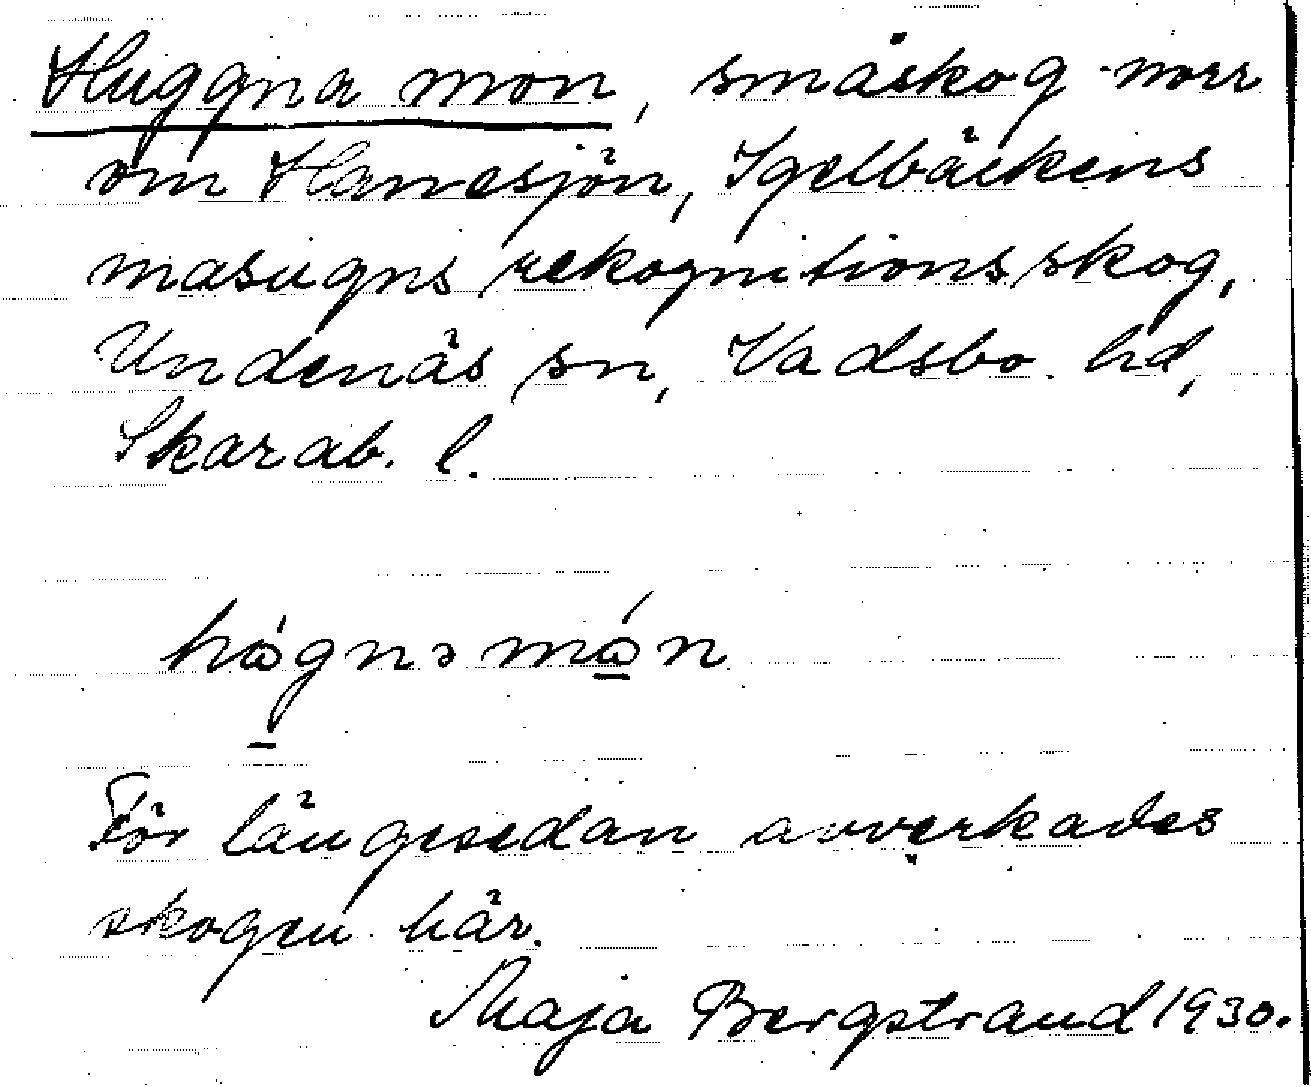 Huggna mon, småskog norr
om Hanesjön, Igelbäckens
masugns rekognitionsskog,
Undenäs sn, Vadsbo hd,
Skarab. l.
hògnəmɷ́n
För längesedan avverkades
skogen här.
Maja Bergstrand 1930.